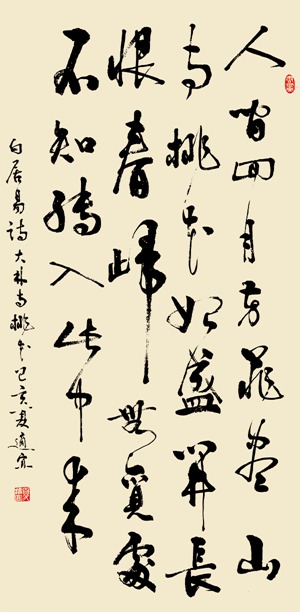 人間四月芳菲盡山
寺桃花始盛開長
恨春歸無覓處
不知轉入此中來
白居易詩大林寺桃花己亥夏適宜